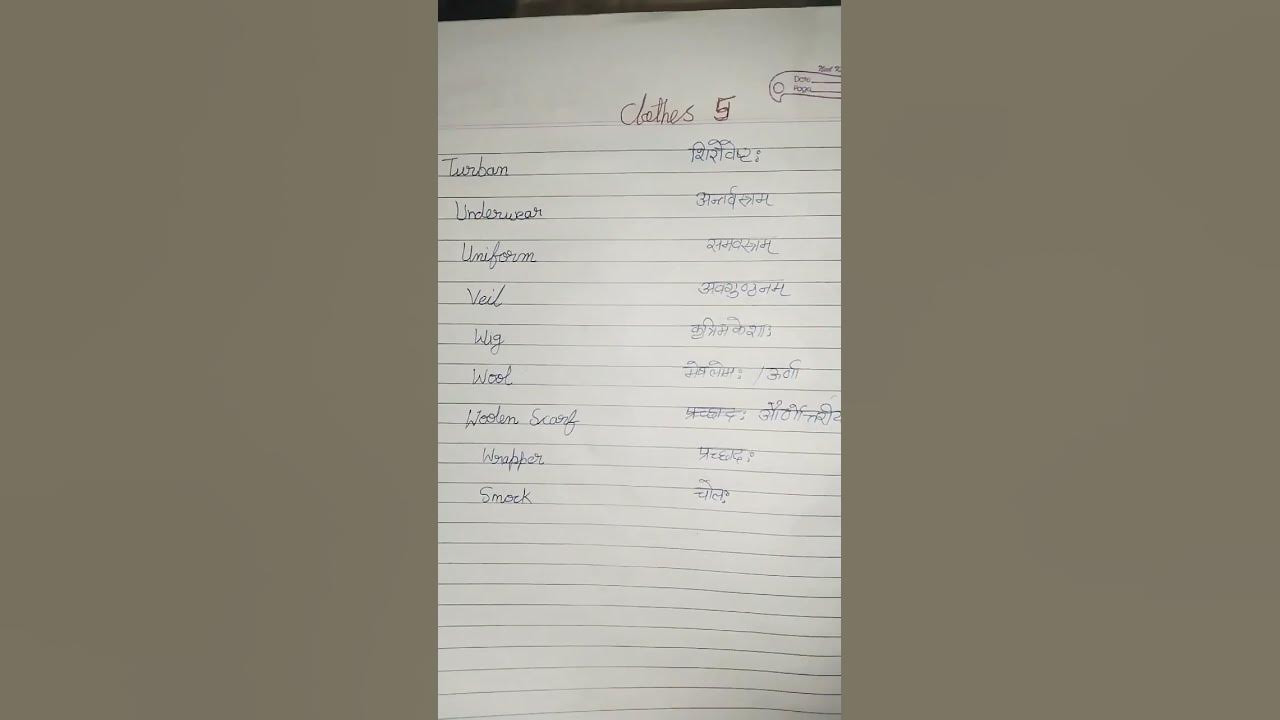 Date
Page
Clothes 5
Turban शिरोवेष्टः
Underwear अन्तर्वस्त्रम्
Uniform समवस्त्रम्
Veil अवगुण्ठनम्
Wig कृत्रिमकेशाः
Wool मेषलोमः / ऊर्णा
Woolen Scarf प्रच्छादः
Wrapper प्रच्छादः
Smock चोलः